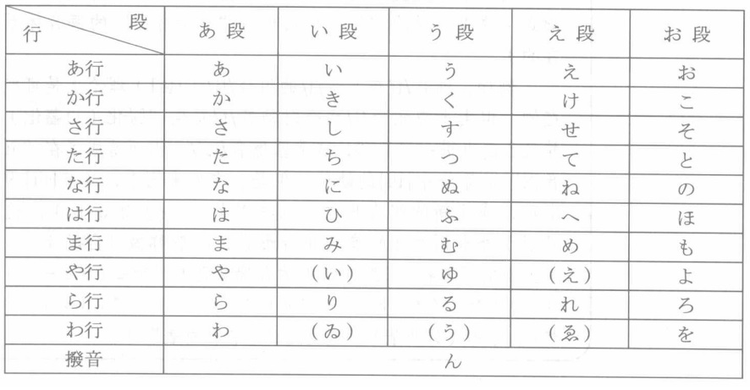 段
行 あ段 い段 う段 え段 お段
あ行 あ い う え お
か行 か き く け こ
さ行 さ し す せ そ
た行 た ち つ て と
な行 な に ぬ ね の
は行 は ひ ふ へ ほ
ま行 ま み む め も
や行 や (い) ゆ (え) よ
ら行 ら り る れ ろ
わ行 わ (ゐ) (う) (ゑ) を
撥音 ん